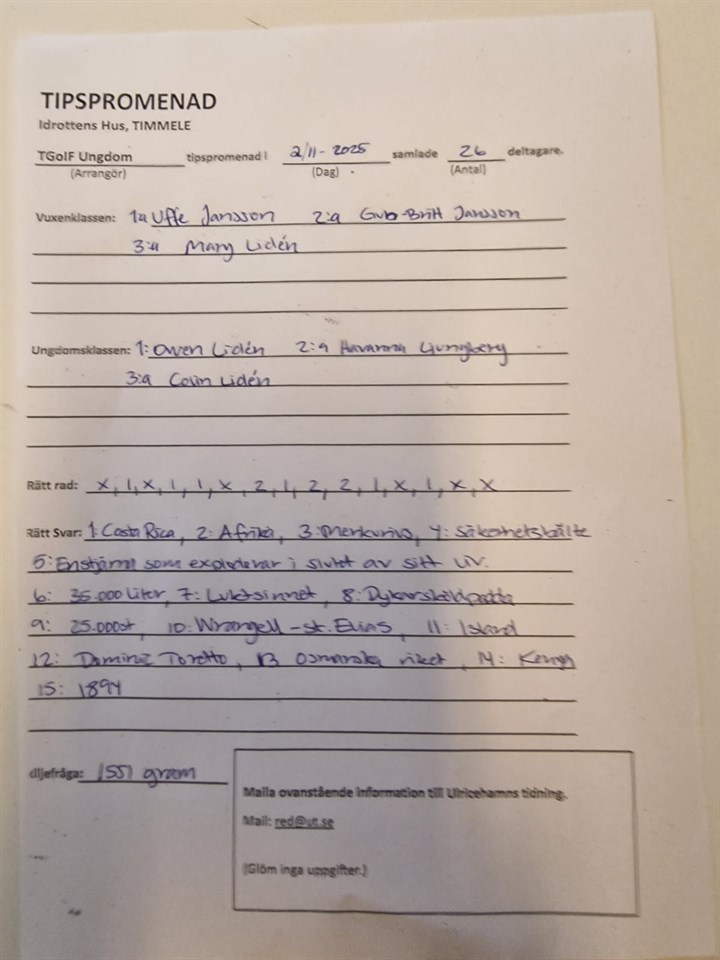 TIPSPROMENAD
Idrottens Hus, TIMMELE
TGoIF Ungdom tipspromenad i 2/11-2025 samlade 26 deltagare.
(Arrangör) (Dag) (Antal)
Vuxenklassen: 1:a Uffe Jansson 2:a Gub-Britt Jansson
3:a Mary Lidén
Ungdomsklassen: 1: Owen Lidén 2:a Havanna Ljungberg
3:a Colin Lidén
Rätt rad: X, 1, X, 1, 1, X, 2, 1, 2, 2, 1, X, 1, X, X
Rätt Svar: 1: Costa Rica, 2: Afrika, 3: Merkurius, 4: Säkerhetsbälte
5: En stjärna som exploderar i slutet av sitt liv.
6: 35.000 Liter, 7: Luktsinnet, 8: Dykarsköldpadda
9: 25.000st, 10: Wrangell-St. Elias, 11: Island
12: Dominic Toretto, 13 Osmanska riket, 14: Kenya
15: 1894
iljefråga: 1551 gram
Maila ovanstående information till Ulricehamns tidning.
Mail: red@ut.se
(Glöm inga uppgifter.)